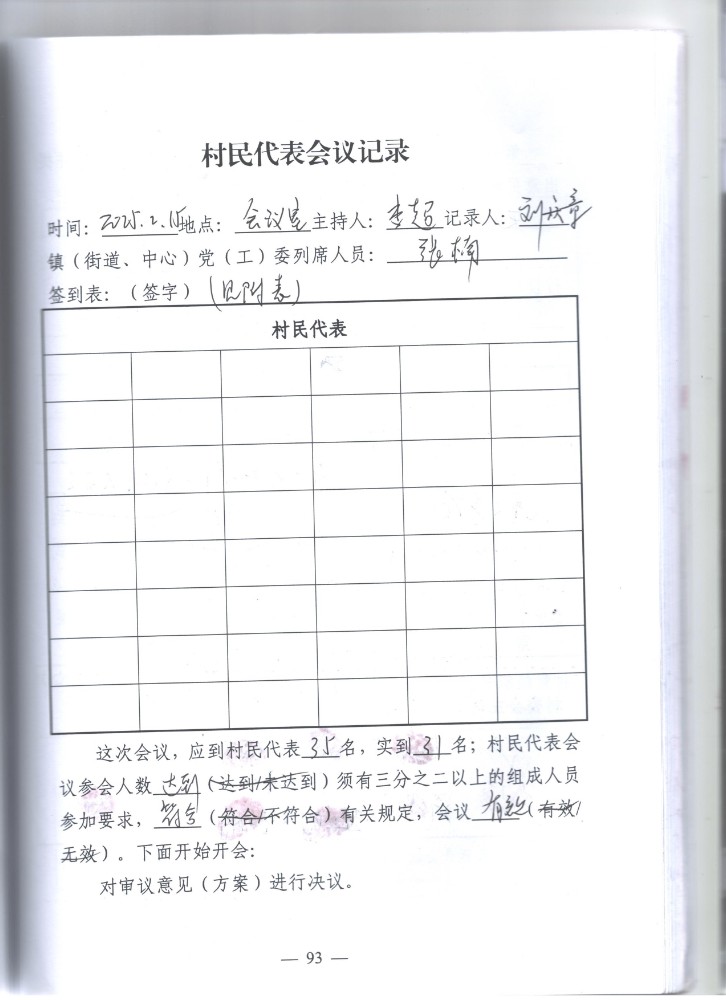 村民代表会议记录
时间：2025.2.15地点：会议室主持人：李超记录人：刘庆章
镇（街道、中心）党（工）委列席人员：张楠
签到表：（签字）（见附表）
村民代表
这次会议，应到村民代表35名，实到31名；村民代表会
议参会人数达到（达到/未达到）须有三分之二以上的组成人员
参加要求，符合（符合/不符合）有关规定，会议有效（有效/
无效）。下面开始开会：
对审议意见（方案）进行决议。
— 93 —